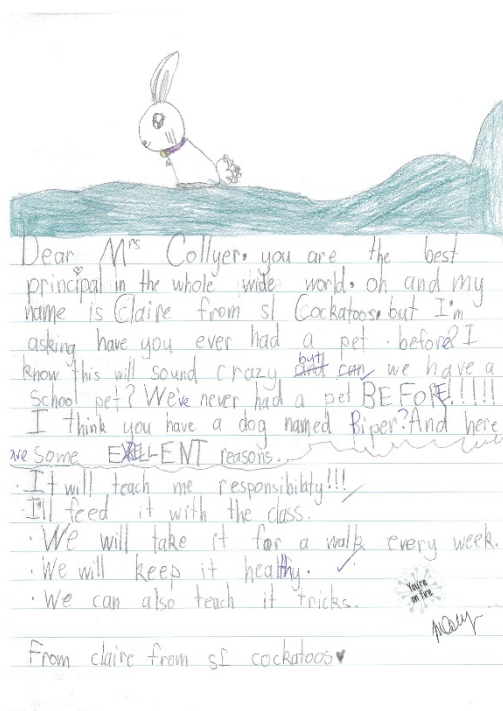 Dear Mrs Collyer, you are the best
principal in the whole wide world. oh and my
name is Claire from s1 Cockatoos, but I'm
asking have you ever had a pet before? I
know this will sound crazy but can we have a
School pet? We've never had a pet BEFORE!!!!!
I think you have a dog named Biper? And here
are some EXELLENT reasons.
· It will teach me responsibilaty!!!
· I'll feed it with the class.
· We will take it for a walk every week.
· We will keep it healthy.
· We can also teach it tricks.
You're on fire
From claire from s1 cockatoos♥